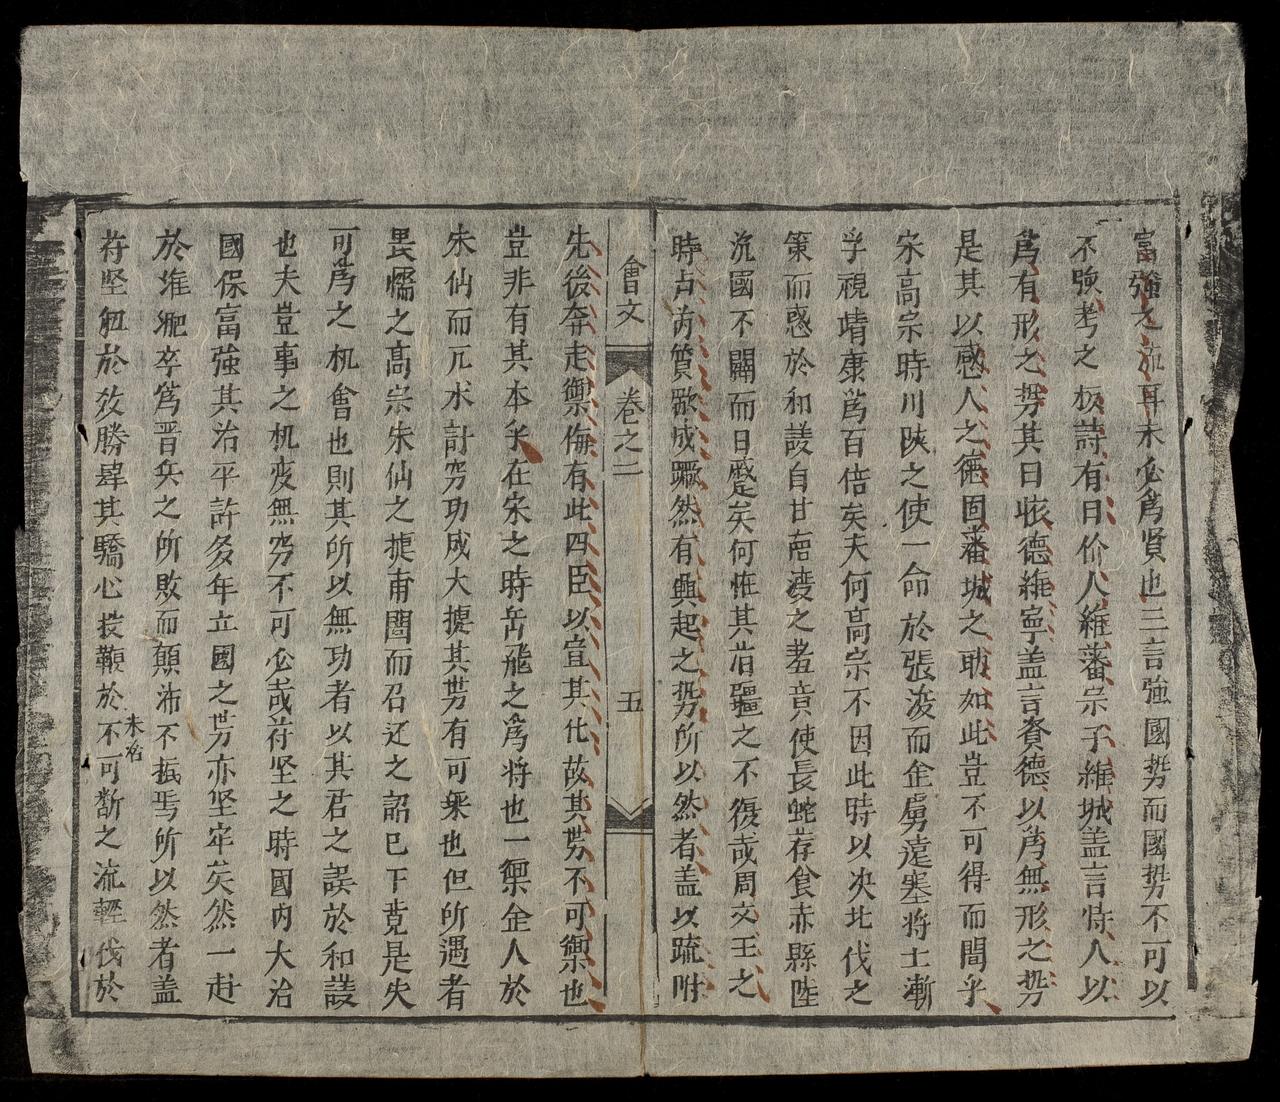 富強之流耳未必為賢也三言強國勢而國勢不可以
不強考之板詩有曰价人維藩宗子維城盖言恃人以
為有形之勢其曰懷德維寧盖言資德以為無形之勢
是其以感人之德固藩城之助如此豈不可得而間乎
宋高宗時川陝之使一命於張浚而企虜遠塞將士漸
孚視靖康為百倍矣夫何高宗不因此時以决北伐之
策而惑於和議自甘南渡之羞竟使長蛇荐食赤縣陸
沉國不闢而日蹙矣何惟其旧疆之不復哉周文王之
時占芮質厥成蹶然有興起之勢所以然者盖以疏附
會文 卷之二 五
先後奔走禦侮有此四臣以宣其化故其势不可禦也
豈非有其本乎在宋之時岳飛之為將也一禦企人於
朱仙而兀术計穷功成大捷其势有可乘也但所遇者
畏懦之高宗朱仙之捷甫聞而召还之詔已下竟是失
可為之机會也則其所以無功者以其君之誤於和議
也夫豈事之机变無穷不可必哉苻坚之時國内大治
國保富強其治平許多年立國之势亦坚牢矣然一赴
於淮淝卒為晋兵之所敗而顛沛不振焉所以然者盖
苻坚狃於敉勝肆其驕心投鞭於不可斷之流輕伐於
未治